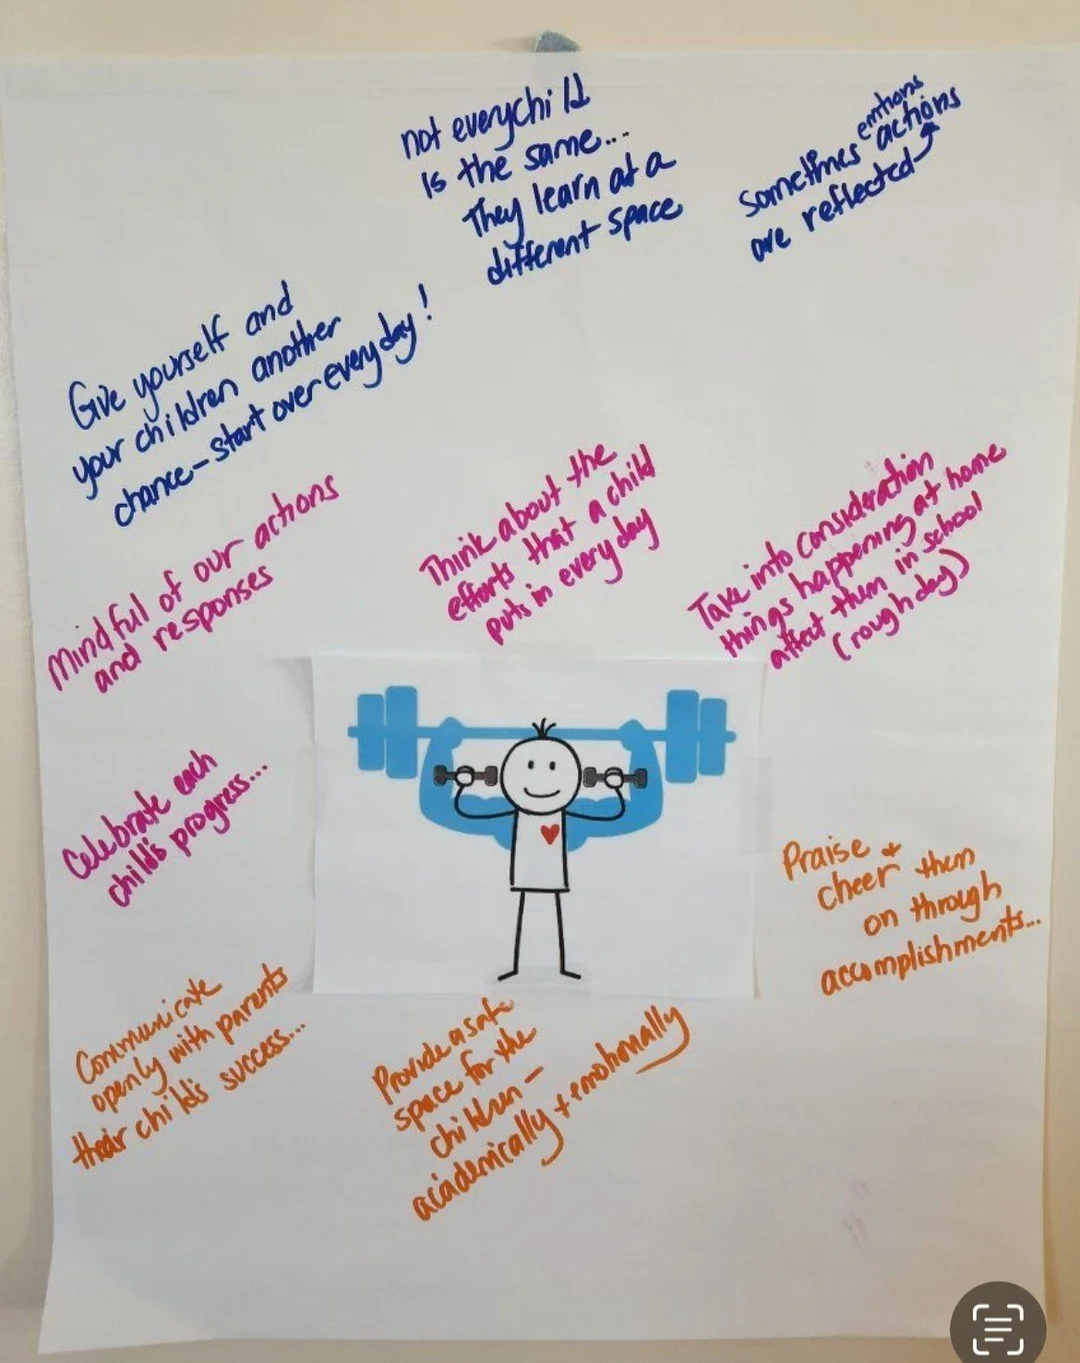 not everychild
is the same...
They learn at a
different space
sometimes emtions actions
are reflected
Give yourself and
your children another
chance - start over everyday!
Mindful of our actions
and responses
Think about the
efforts that a child
puts in everyday
Take into consideration
things happening at home
affect them in school
(rough day)
Celebrate each
child's progress...
Praise +
cheer them
on through
accomplishments...
Communicate
openly with parents
their child's success...
Provide a safe
space for the
children -
academically + emotionally